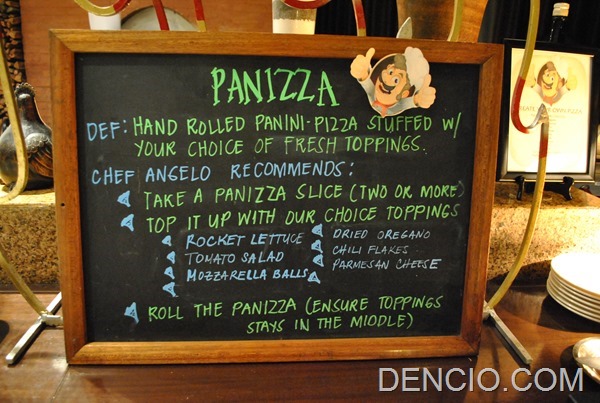 PANIZZA
DEF: HAND ROLLED PANINI-PIZZA STUFFED W/
YOUR CHOICE OF FRESH TOPPINGS.
CHEF ANGELO RECOMMENDS:
TAKE A PANIZZA SLICE (TWO OR MORE)
TOP IT UP WITH OUR CHOICE TOPPINGS
ROCKET LETTUCE
TOMATO SALAD
MOZZARELLA BALLS
DRIED OREGANO
CHILI FLAKES
PARMESAN CHEESE
ROLL THE PANIZZA (ENSURE TOPPINGS
STAYS IN THE MIDDLE)
DENCIO.COM